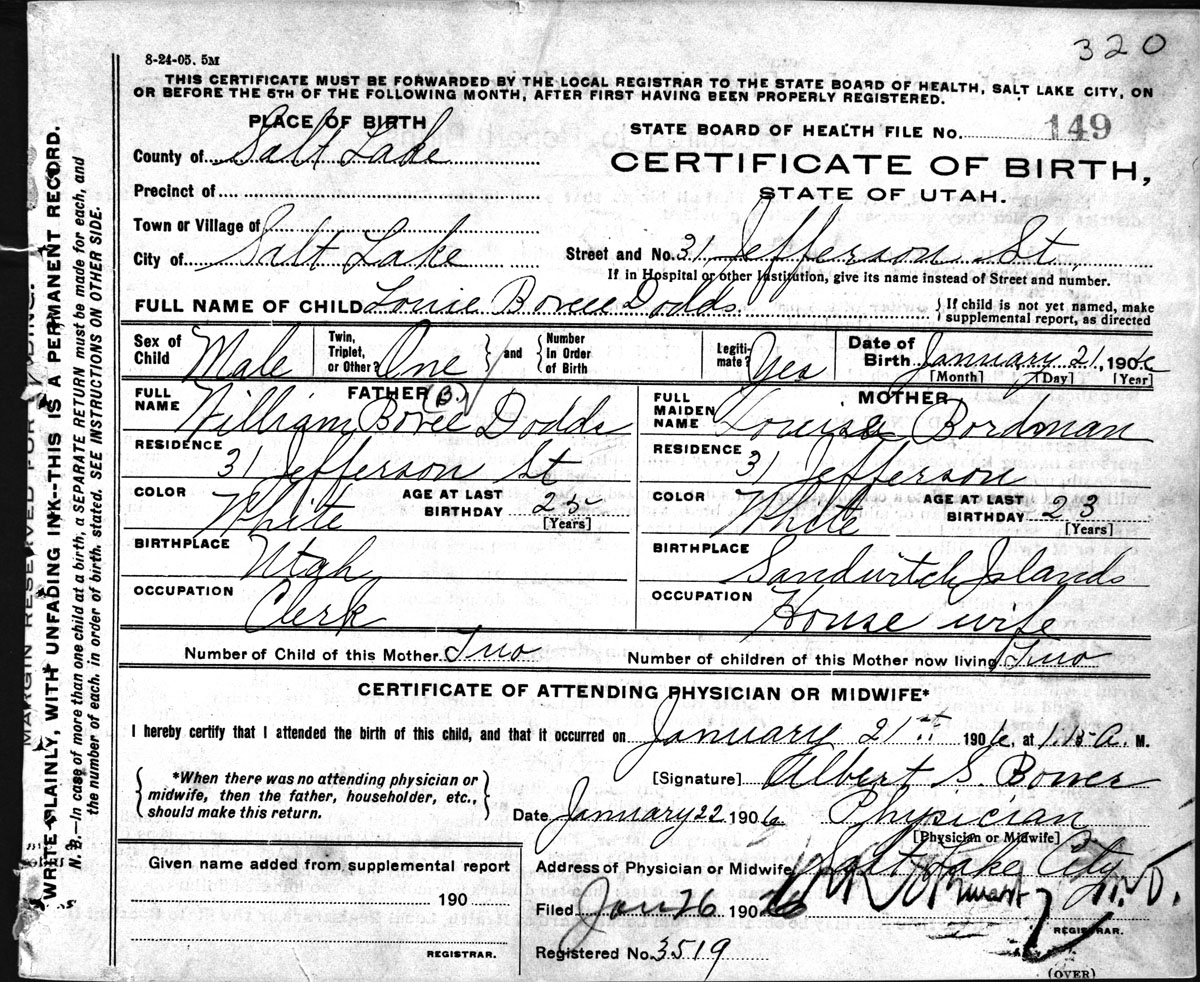 320
8-24-05. 5M
THIS CERTIFICATE MUST BE FORWARDED BY THE LOCAL REGISTRAR TO THE STATE BOARD OF HEALTH, SALT LAKE CITY, ON
OR BEFORE THE 5TH OF THE FOLLOWING MONTH, AFTER FIRST HAVING BEEN PROPERLY REGISTERED.
PLACE OF BIRTH
STATE BOARD OF HEALTH FILE No. 149
County of Salt Lake
CERTIFICATE OF BIRTH,
Precinct of
STATE OF UTAH.
Town or Village of
City of Salt Lake
Street and No. 31 Jefferson St.
If in Hospital or other Institution, give its name instead of Street and number.
FULL NAME OF CHILD Louie Bovee Dodds.
{If child is not yet named, make
supplemental report, as directed
Sex of Child Male
Twin, Triplet, or Other? One } and { Number In Order of Birth
Legitimate? Yes
Date of Birth January 21, 1906
[Month] [Day] [Year]
FATHER (B.)
FULL NAME William Bovee Dodds
RESIDENCE 31 Jefferson St
COLOR White
AGE AT LAST BIRTHDAY 25
[Years]
BIRTHPLACE Utah
OCCUPATION Clerk
MOTHER
FULL MAIDEN NAME Louise Bordman
RESIDENCE 31 Jefferson
COLOR White
AGE AT LAST BIRTHDAY 23
[Years]
BIRTHPLACE Sandwitch Islands
OCCUPATION House wife
Number of Child of this Mother Two
Number of children of this Mother now living Two
CERTIFICATE OF ATTENDING PHYSICIAN OR MIDWIFE*
I hereby certify that I attended the birth of this child, and that it occurred on January 21st 1906, at 1.15 A. M.
{*When there was no attending physician or
midwife, then the father, householder, etc.,
should make this return.}
[Signature] Albert S. Bower
Date January 22 1906 Physician
[Physician or Midwife]
Given name added from supplemental report
190
REGISTRAR.
Address of Physician or Midwife Salt Lake City
Filed Jan 26 1906 M.D.
REGISTRAR.
Registered No. 3519
(OVER)
MARGIN RESERVED FOR BINDING.
WRITE PLAINLY, WITH UNFADING INK--THIS IS A PERMANENT RECORD.
N. B.—In case of more than one child at a birth, a SEPARATE RETURN must be made for each, and
the number of each, in order of birth, stated. SEE INSTRUCTIONS ON OTHER SIDE.